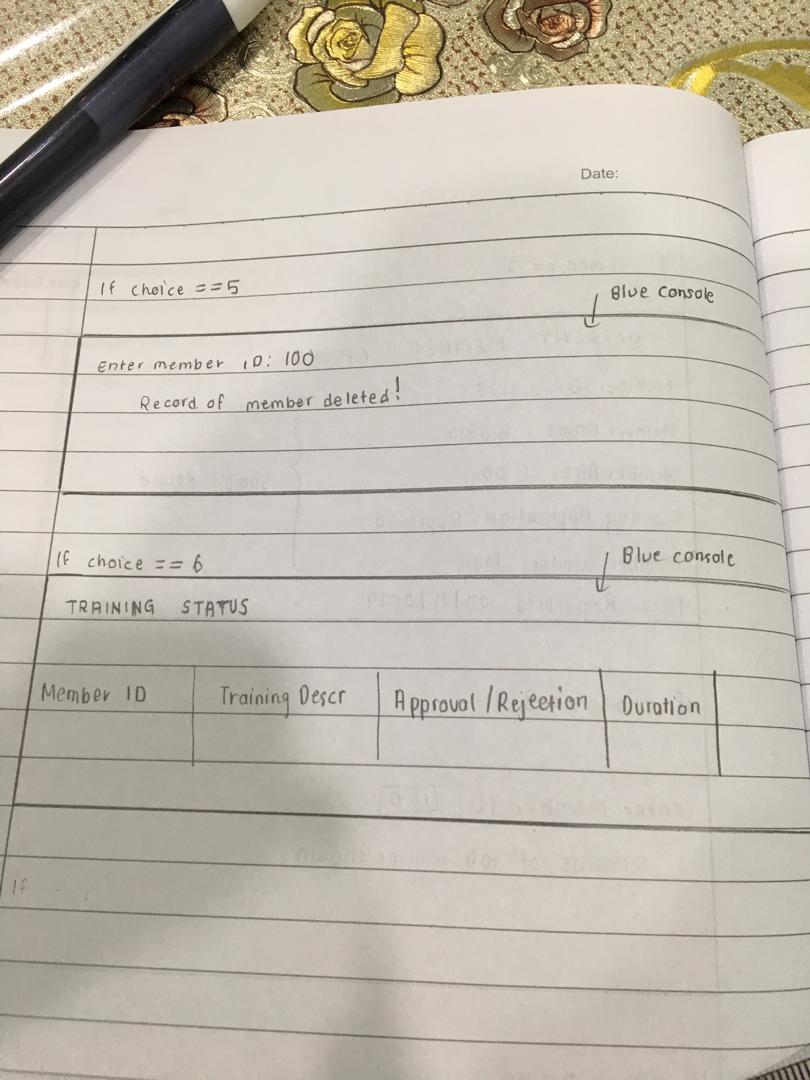 Date:
If choice ==5
Blue console
Enter member ID: 100
Record of member deleted!
If choice == 6
Blue console
TRAINING STATUS
Member ID Training Descr Approval/Rejection Duration
If